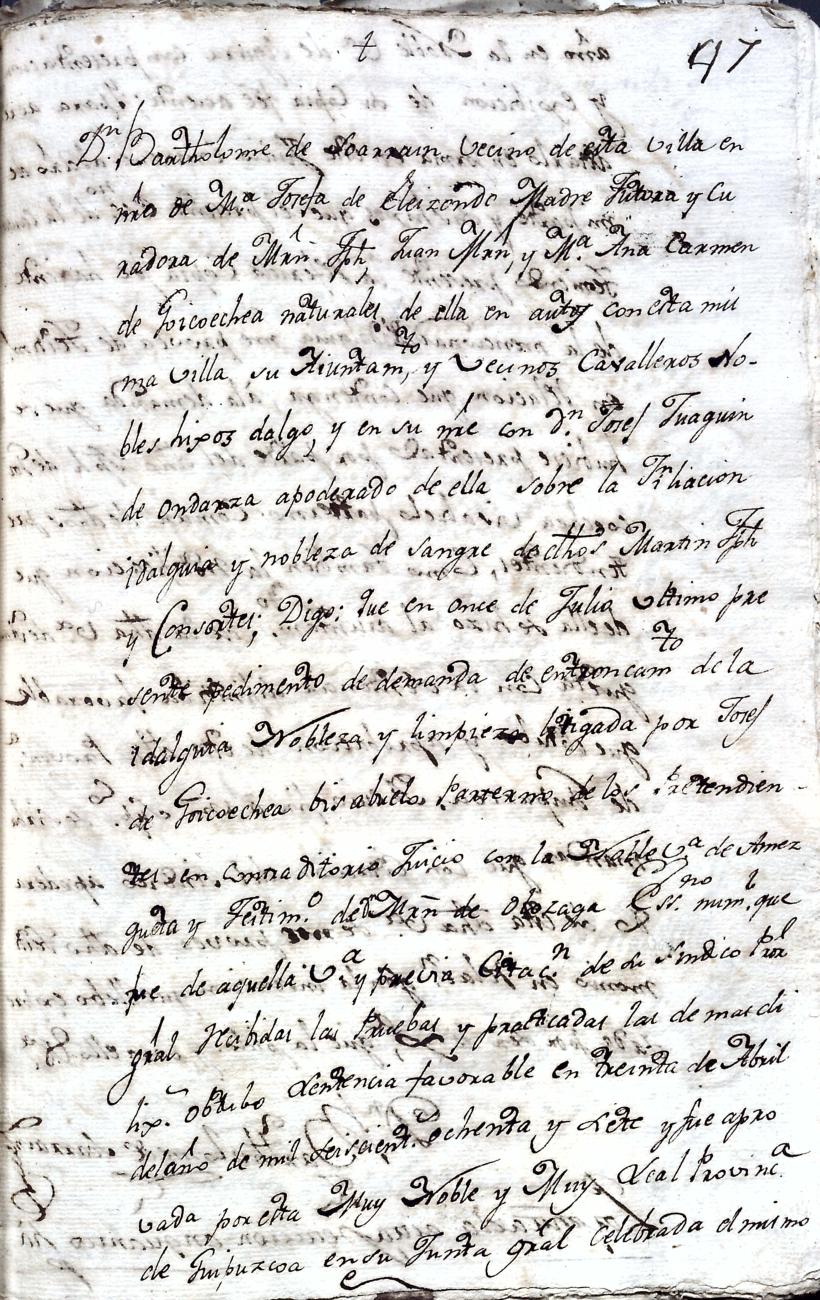 †
47
Dn. Bartholome de Soarrain vecino de esta villa en
nre de Ma. Josefa de Eleizondo Madre Tutora y Cu
radora de Mrn. Jph, Juan Mrn, y Ma. Ana Carmen
de Goicoechea naturales de ella en autos con esta mis
ma villa su Aiuntamto, y vecinos Cavalleros No-
bles hixos dalgo, y en su nre con dn. Josef Juaquin
de Ondarza apoderado de ella sobre la Filiacion
idalguia y nobleza de sangre de dhos Martin Jph
y Consortes; Digo: que en once de Julio ultimo pre
sente pedimento de demanda de entroncamto de la
idalguia Nobleza y limpieza litigada por Josef
de Goicoechea bisabuelo Paterno de los Pretendien-
tes en contraditorio Juicio con la Noble Va. de Amez
queta y Testimo. de Mrn de Obzaga Essno. numl. que
fue de aquella Va. y previa Citacn. de su Sindico Pror
gral recibidas las Pruebas y practicadas las demas di
lixs. obtubo sentencia favorable en treinta de Abril
del año de mil seiscients. ochenta y siete y fue apro
vada por esta Muy Noble y Muy Leal Provinca
de Guipuzcoa en su Junta gral celebrada el mismo